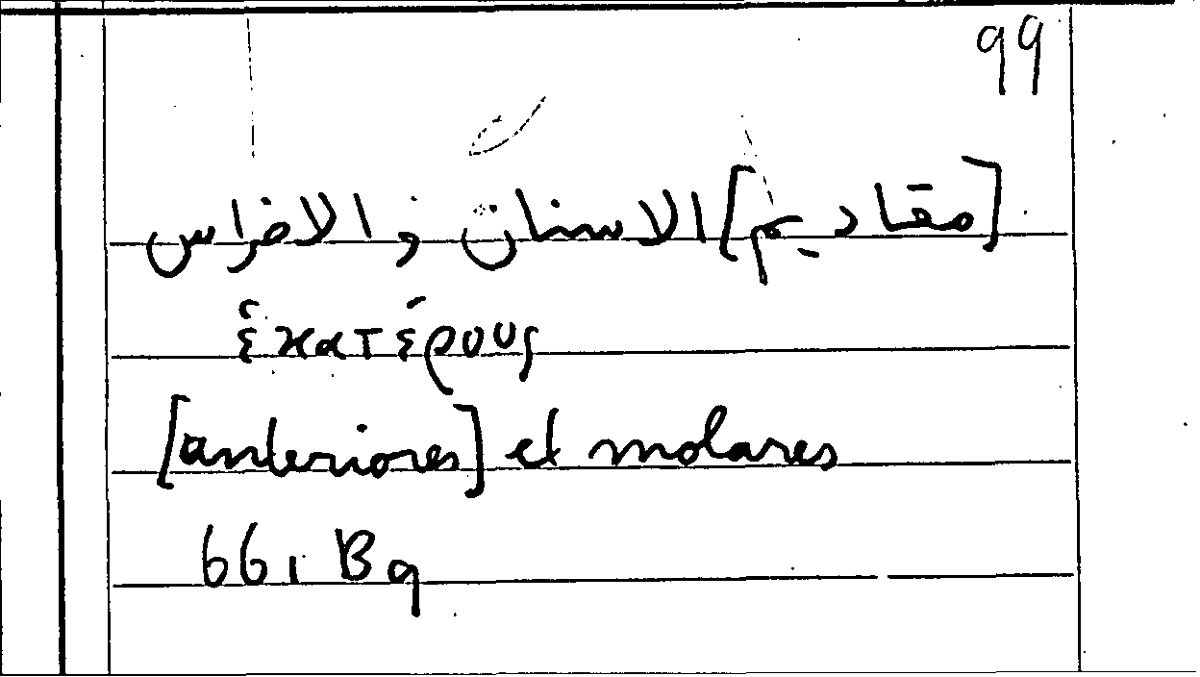 99
[مقاديم] الاسنان والاضراس
ἑκατέρους
[anteriores] et molares
661 B9